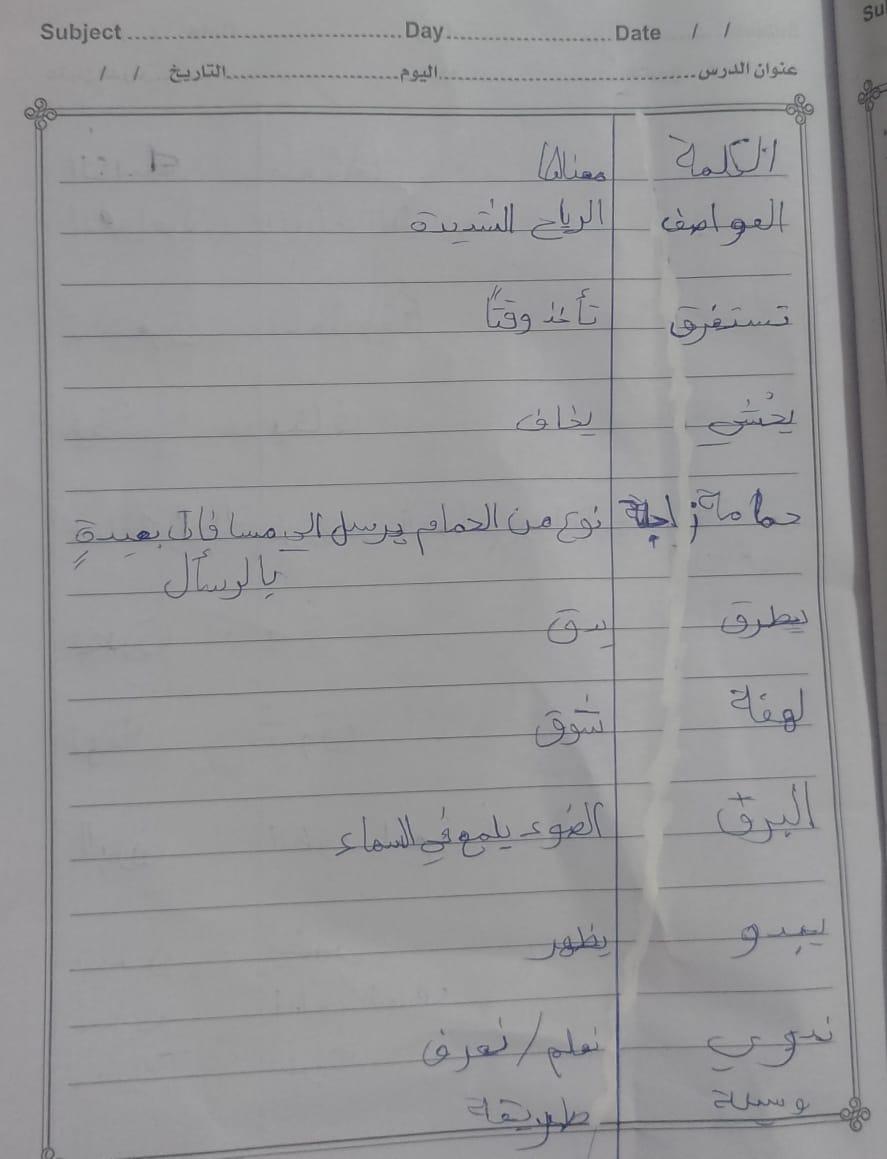 Subject ........ Day ........ Date / /
عنوان الدرس ........ اليوم ........ التاريخ / /
الكلمة معناها
العواصف الرياح الشديدة
تستغرق تأخذ وقتاً
يخشى يخاف
حمامة زاجلة نوع من الحمام يرسل الى مسافات بعيدةٍ
بالرسأل
يطرق يدق
لهفة شوق
البرق الضوء يلمع في السماء
يبدو يظهر
ندوي نعلم / نعرف
وسيلة طريقة
Su